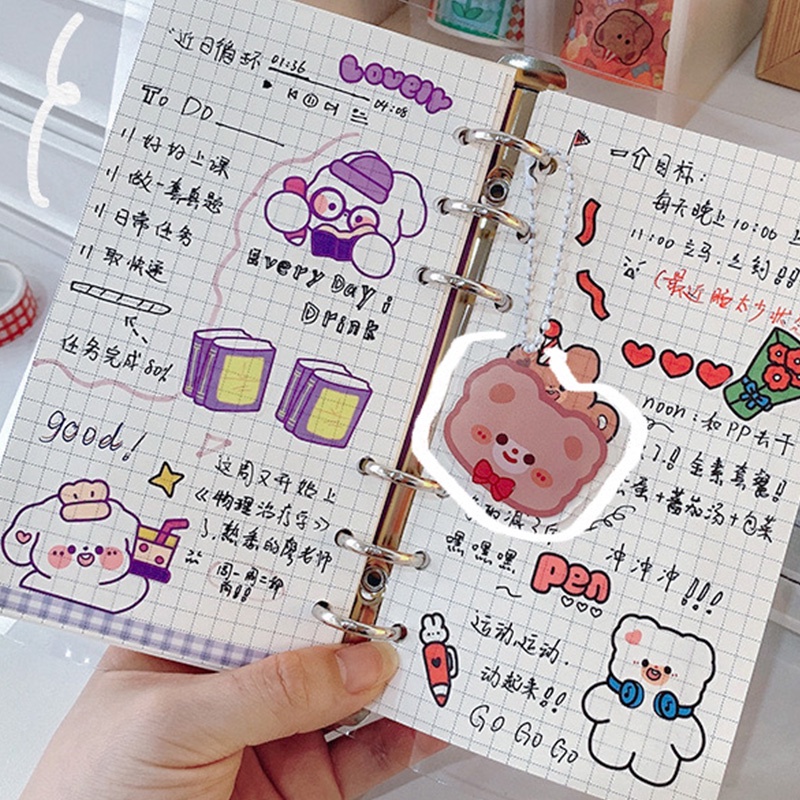 近日循环 01:36
04:08
Lovely
To Do
好好上课
做一套真题
日常任务
取快递
任务完成80%
good!
Every Day i
Drink
这周又开始上
《物理治疗学》
了,熟悉的廖老师
周一周二种
一个目标:
每天晚上10:00
11:00立马、立刻!!
(最近脸太少
noon:和PP去干
了!全素真馨!
蛋+蕃茄汤+包菜
嘿嘿嘿
冲冲冲!!!
Pen
运动运动.
动起来!!
GO GO GO